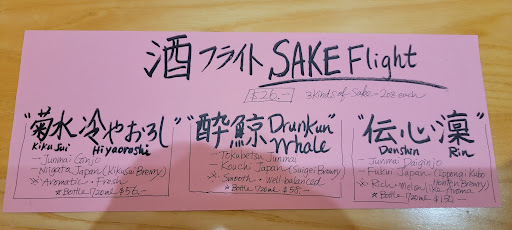 酒フライト SAKE Flight
$26.- 3kinds of Sake - 2oz each
"菊水 冷やおろし"
Kiku Sui Hiyaoroshi
- Junmai Ginjo
- Niigata Japan (KikuSui Brewry)
※ Aromatic・Fresh
★ Bottle 720ml $56.-
"酔鯨 Drunkun Whale"
- Tokubetsu Junmai
- Kouchi Japan (Suigei Brewry)
※ Smooth・Well-balanced
★ Bottle 720ml $58.-
"伝心 凜"
Denshin Rin
- Junmai Daiginjo
- Fukui Japan (Ippongi Kubo Honten Brewry)
※ Rich・Melon like Aroma
★ Bottle 720ml